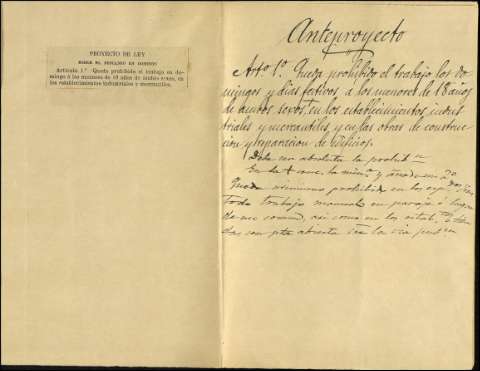 PROYECTO DE LEY
SOBRE EL DESCANSO EN DOMINGO
Artículo 1.º Queda prohibido el trabajo en do-
mingo á los menores de 18 años de ambos sexos, en
los establecimientos industriales y mercantiles.
Anteproyecto
Artº 1º. Queda prohibido el trabajo, los do-
mingos y días festivos a los menores de 18 años
de ambos sexos, en los establecimientos indus-
triales y mercantiles, y en las obras de construc-
ción y reparacion de edificios.
Debe ser absoluta la
Queda asimismo prohibido en los
Todo trabajo manual en paraje ó lugar
de uso comun, así como en los
abierta la via